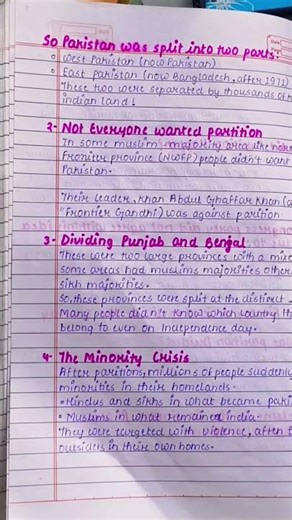 So Pakistan was split into two parts:
○ West Pakistan (now Pakistan)
○ East Pakistan (now Bangladesh, after 1971)
These two were separated by thousands of
indian land!
2- Not Everyone wanted partition
In some muslim-majority area like
Fronier province (NWFP) people didn't want
Pakistan.
Their leader, Khan Abdul Ghaffar Khan
"Frontier Gandhi) was against partition
3- Dividing Punjab and Bengal
These were two large provinces with a
some areas had muslims majorities other
sikh majorities.
So, these provinces were split at the distinct
Many people didn't know which country
belong to even on Independence day.
4- The Minority Crisis
After paritions, millions of people suddenly
minorities in their homelands.
• Hindus and sikhs in what became
• Muslims in what remained india.
They were targeted with violence, after
outsiders in their own homes.